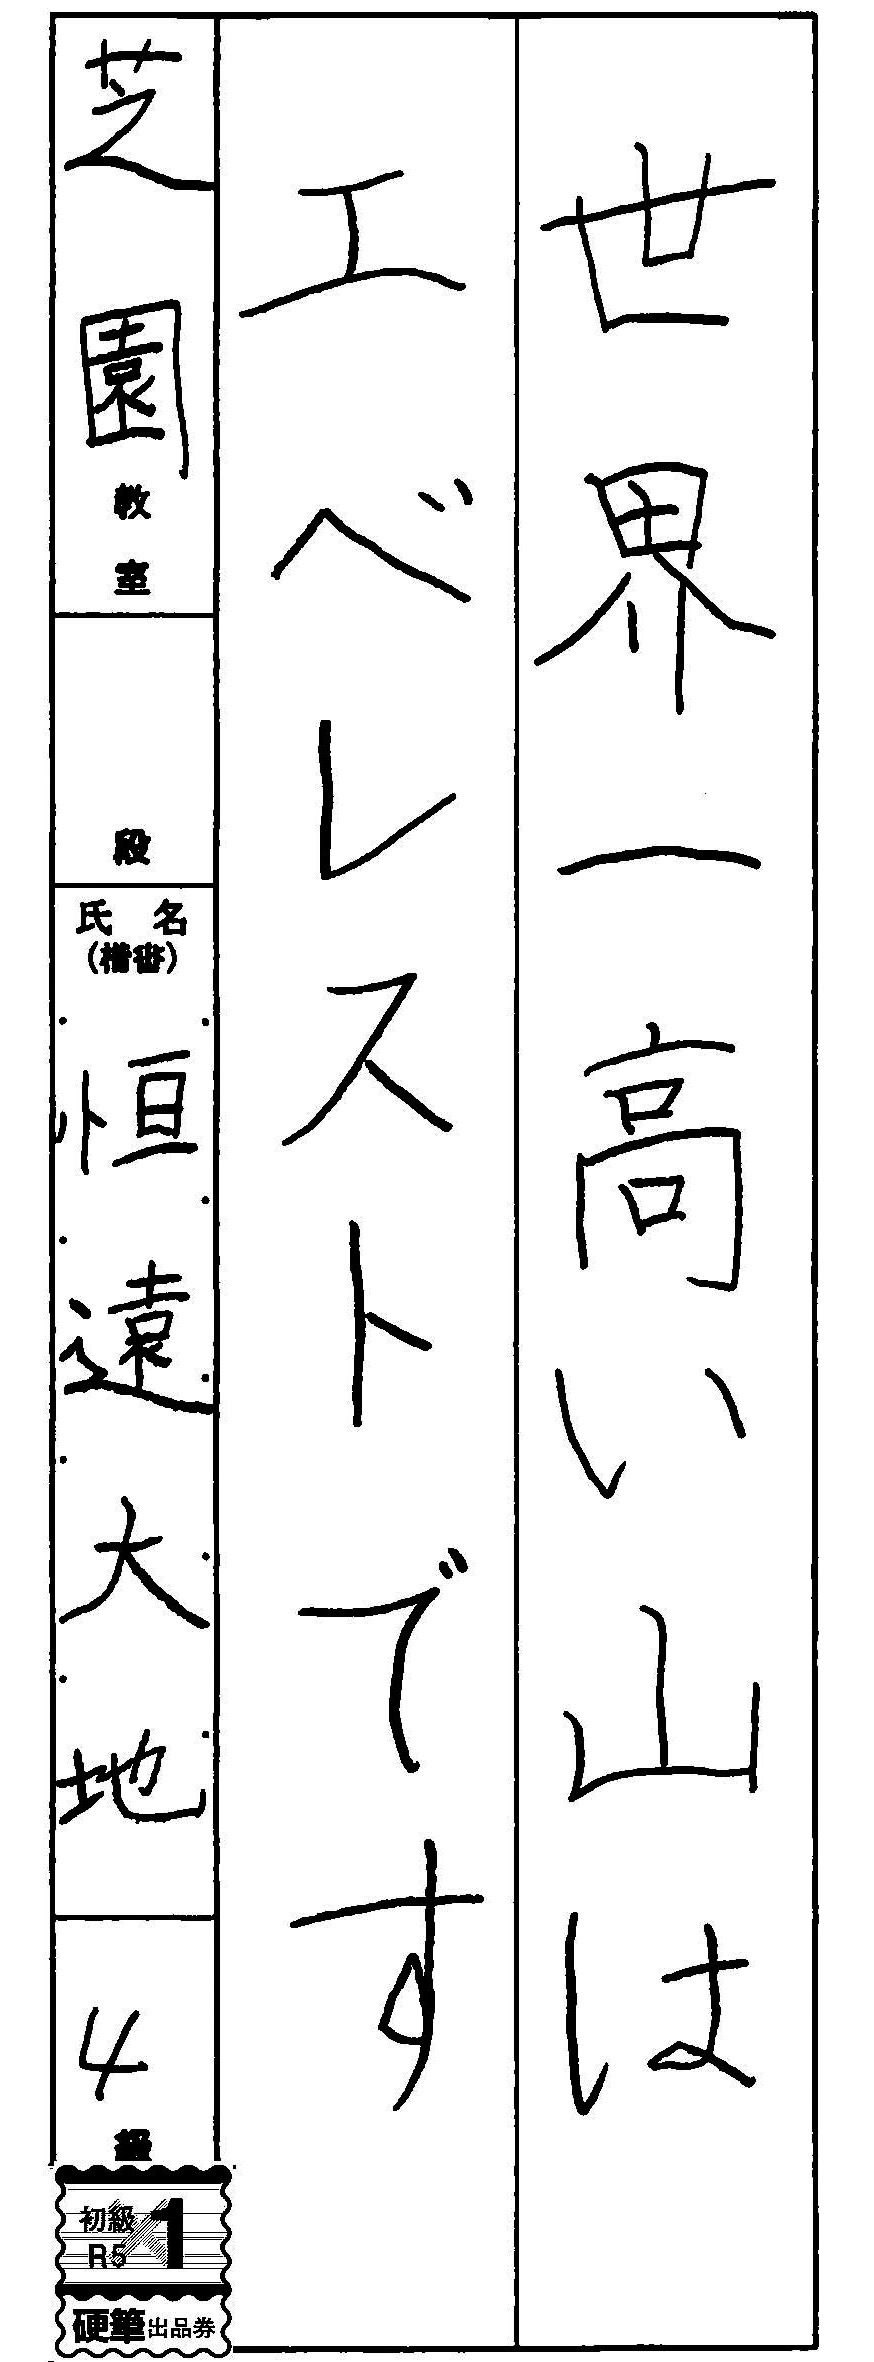 世界一高い山は
エベレストです
芝園教室
段
氏名
(楷書)
恒遠大地
4級
初級
R5
1
硬筆出品券